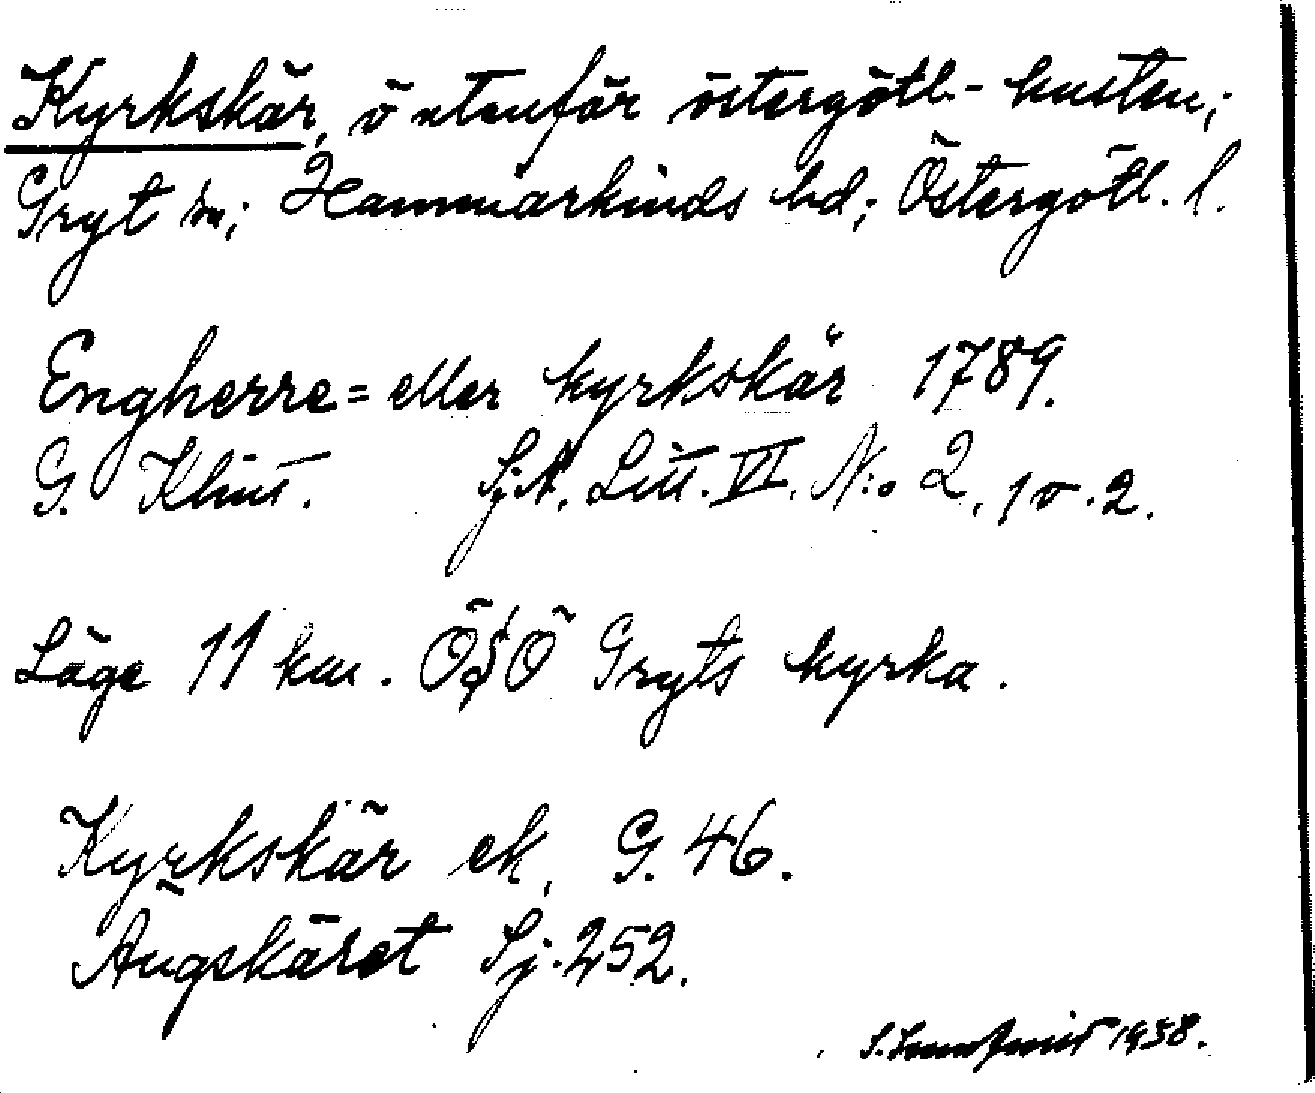 Kyrkskär, ö utanför östergötl.-kusten;
Gryt sn; Hammarkinds hd; Östergötl. l.
Engherre= eller kyrkskär 1789.
G. Klint. Sj.A. Litt. VI. N:o 2, 1 o. 2.
Läge 11 km. ÖSÖ Gryts kyrka.
Kyrkskär ek. G. 46.
Ängskäret Sj. 252.
S. 1938.